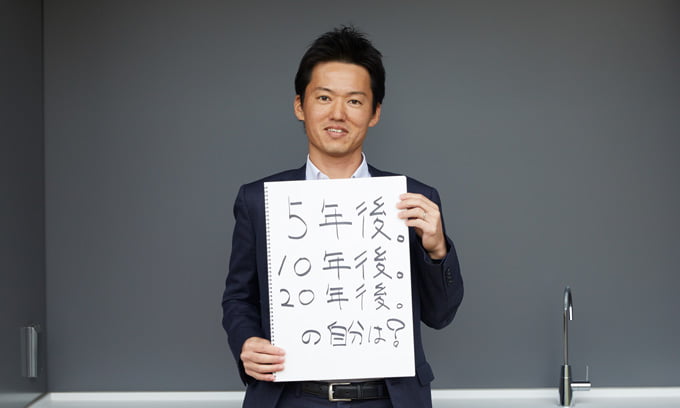 5年後。
10年後。
20年後。
の自分は?